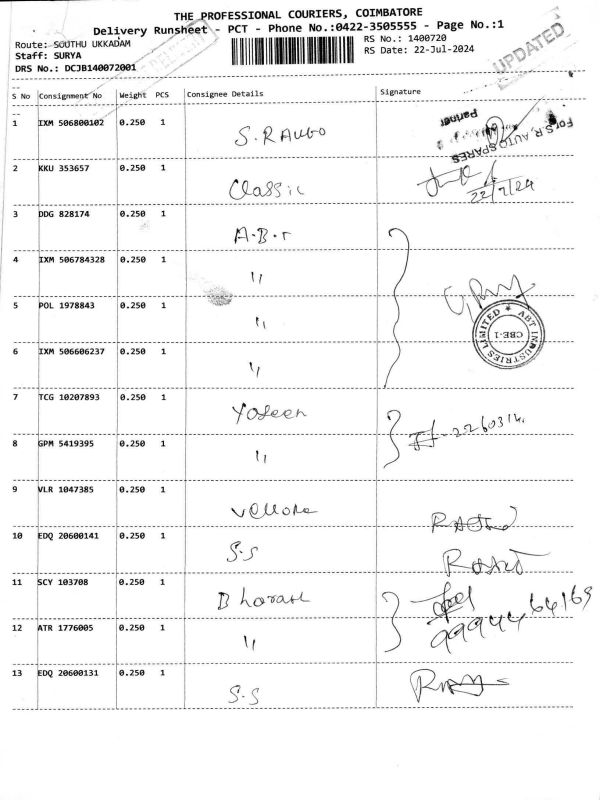 THE PROFESSIONAL COURIERS, COIMBATORE
Delivery Runsheet - PCT - Phone No.:0422-3505555 - Page No.:1
Route: SOUTHU UKKADAM RS No.: 1400720
Staff: SURYA RS Date: 22-Jul-2024
DRS No.: DCJB140072001
UPDATED
S No Consignment No Weight PCS Consignee Details Signature
1 IXM 506800102 0.250 1 S.R Auto
For S.R. AUTO SPARES
Partner
2 KKU 353657 0.250 1 Classic 22/7/24
3 DDG 828174 0.250 1 A.B.T
4 IXM 506784328 0.250 1 "
5 POL 1978843 0.250 1 "
ABT INDUSTRIES LIMITED
CBE-1
6 IXM 506606237 0.250 1 "
7 TCG 10207893 0.250 1 Yaseen
8 GPM 5419395 0.250 1 "
9 VLR 1047385 0.250 1 Vellore
10 EDQ 20600141 0.250 1 S.S
11 SCY 103708 0.250 1 Bharath
12 ATR 1776005 0.250 1 " 9994464169
13 EDQ 20600131 0.250 1 S.S